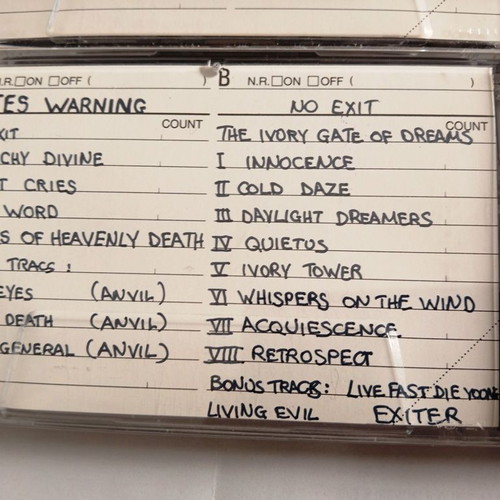 .R. ON OFF ( )
TES WARNING
COUNT
XIT
CHY DIVINE
T CRIES
WORD
S OF HEAVENLY DEATH
TRACS :
EYES (ANVIL)
DEATH (ANVIL)
GENERAL (ANVIL)
B N.R. ON OFF ( )
NO EXIT
COUNT
THE IVORY GATE OF DREAMS
I INNOCENCE
II COLD DAZE
III DAYLIGHT DREAMERS
IV QUIETUS
V IVORY TOWER
VI WHISPERS ON THE WIND
VII ACQUIESCENCE
VIII RETROSPECT
BONUS TRACS: LIVE FAST DIE YOONG
LIVING EVIL EXITER